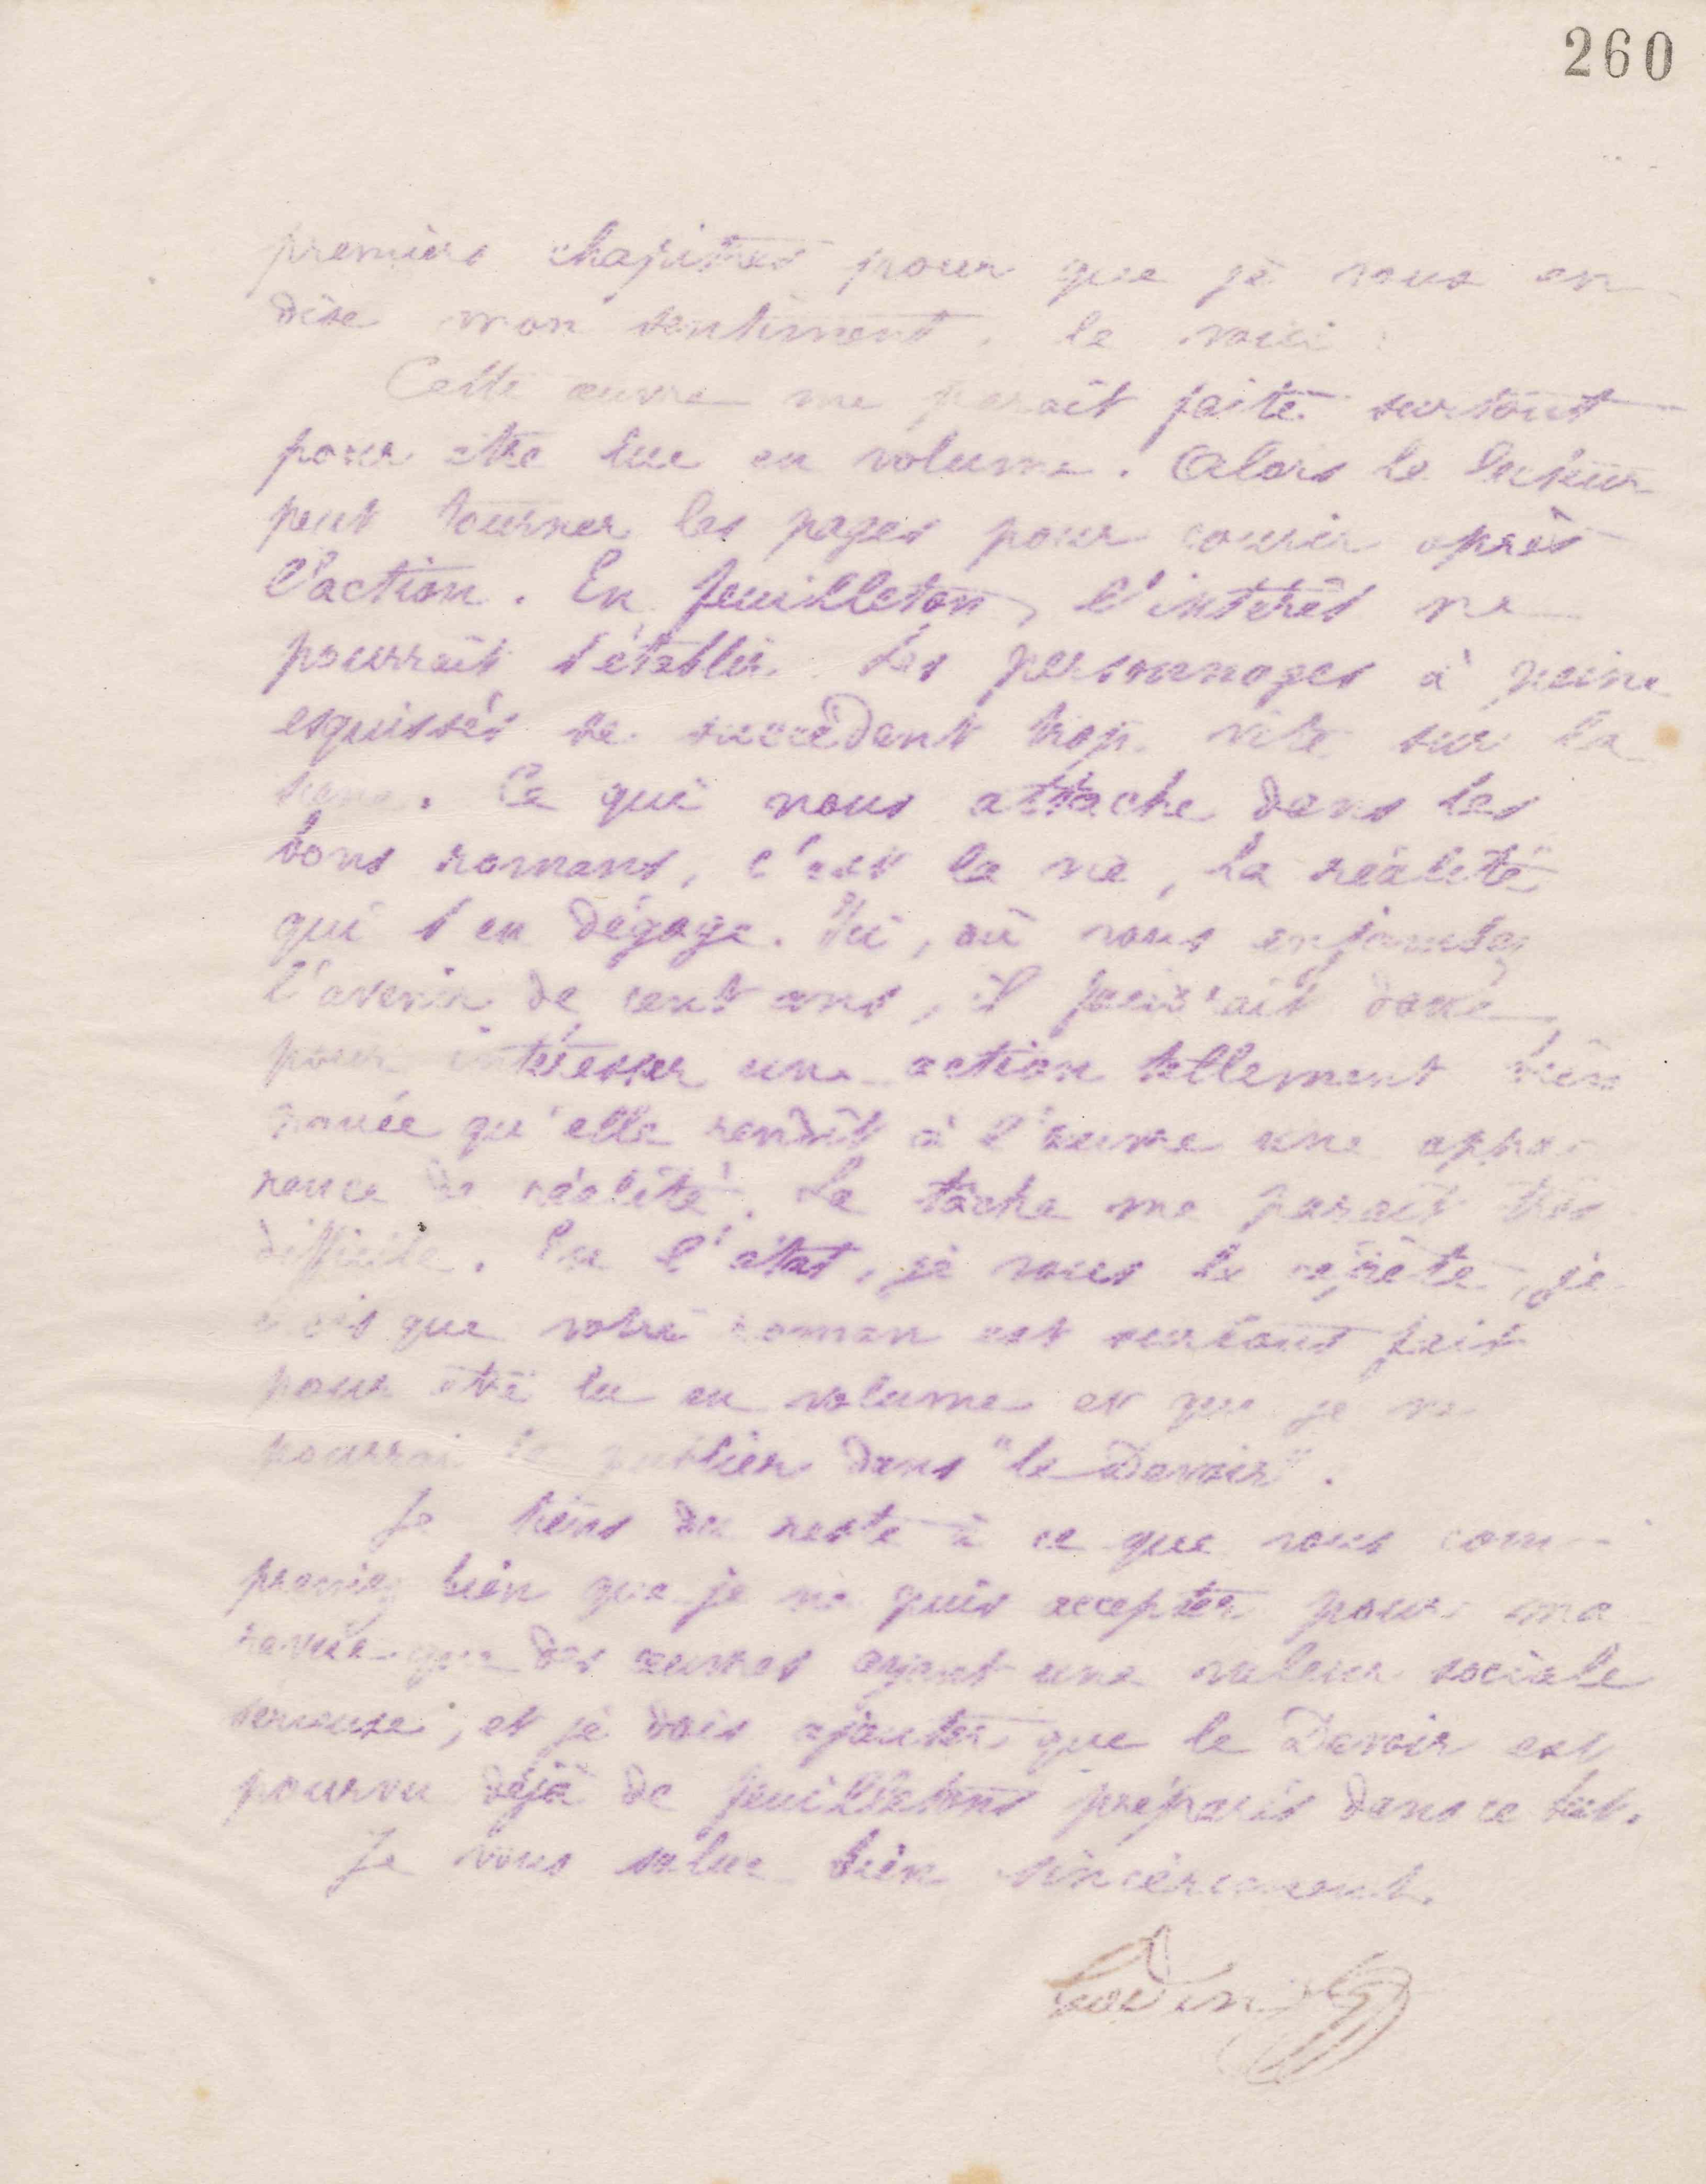 260
premiers chapitres pour que je vous en
dise mon sentiment. le voici :
Cette œuvre me paraît faite surtout
pour être lue en volume. Alors le lecteur
peut tourner les pages pour courir après
l'action. En feuilleton, l'intérêt ne
pourrait s'établir. Les personnages à peine
esquissés se succèdent trop vite sur la
scène. Ce qui nous attache dans les
bons romans, c'est la vie, la réalité
qui s'en dégage. Ici, où vous enjambez
l'avenir de cent ans, il faudrait donc
pour intéresser une action tellement bien
nouée qu'elle rendît à l'œuvre une appa-
rence de réalité. La tâche me paraît très
difficile. En l'état, je vous le répète, je
crois que votre roman est surtout fait
pour être lu en volume et que je ne
pourrai le publier dans "le Devoir".
Je tiens du reste à ce que vous com-
preniez bien que je ne puis accepter pour ma
revue que des œuvres ayant une valeur sociale
sérieuse ; et je dois ajouter que le Devoir est
pourvu déjà de feuilletons préparés dans ce but.
Je vous salue bien sincèrement.
Godin